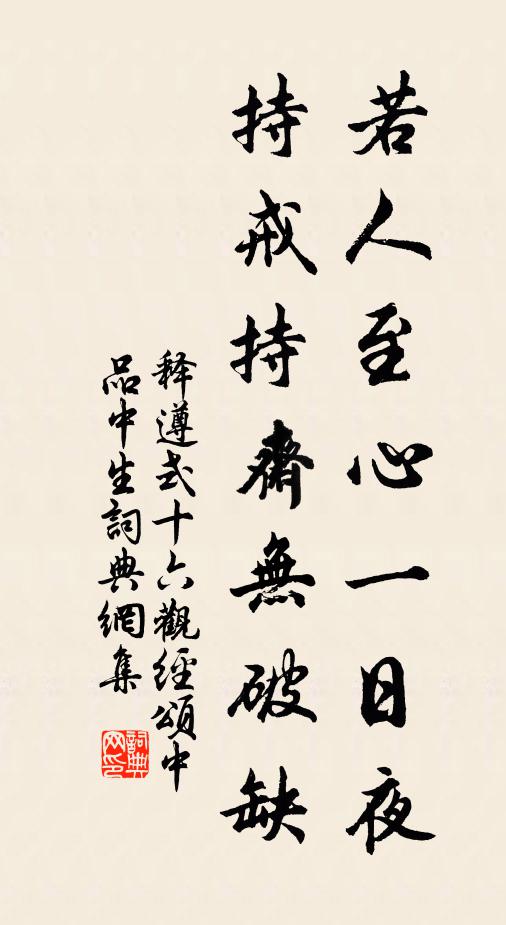 若人至心一日夜
持戒持齋無破缺
释遵式十六觀經頌中
品中生詞典網集
詞典
网印